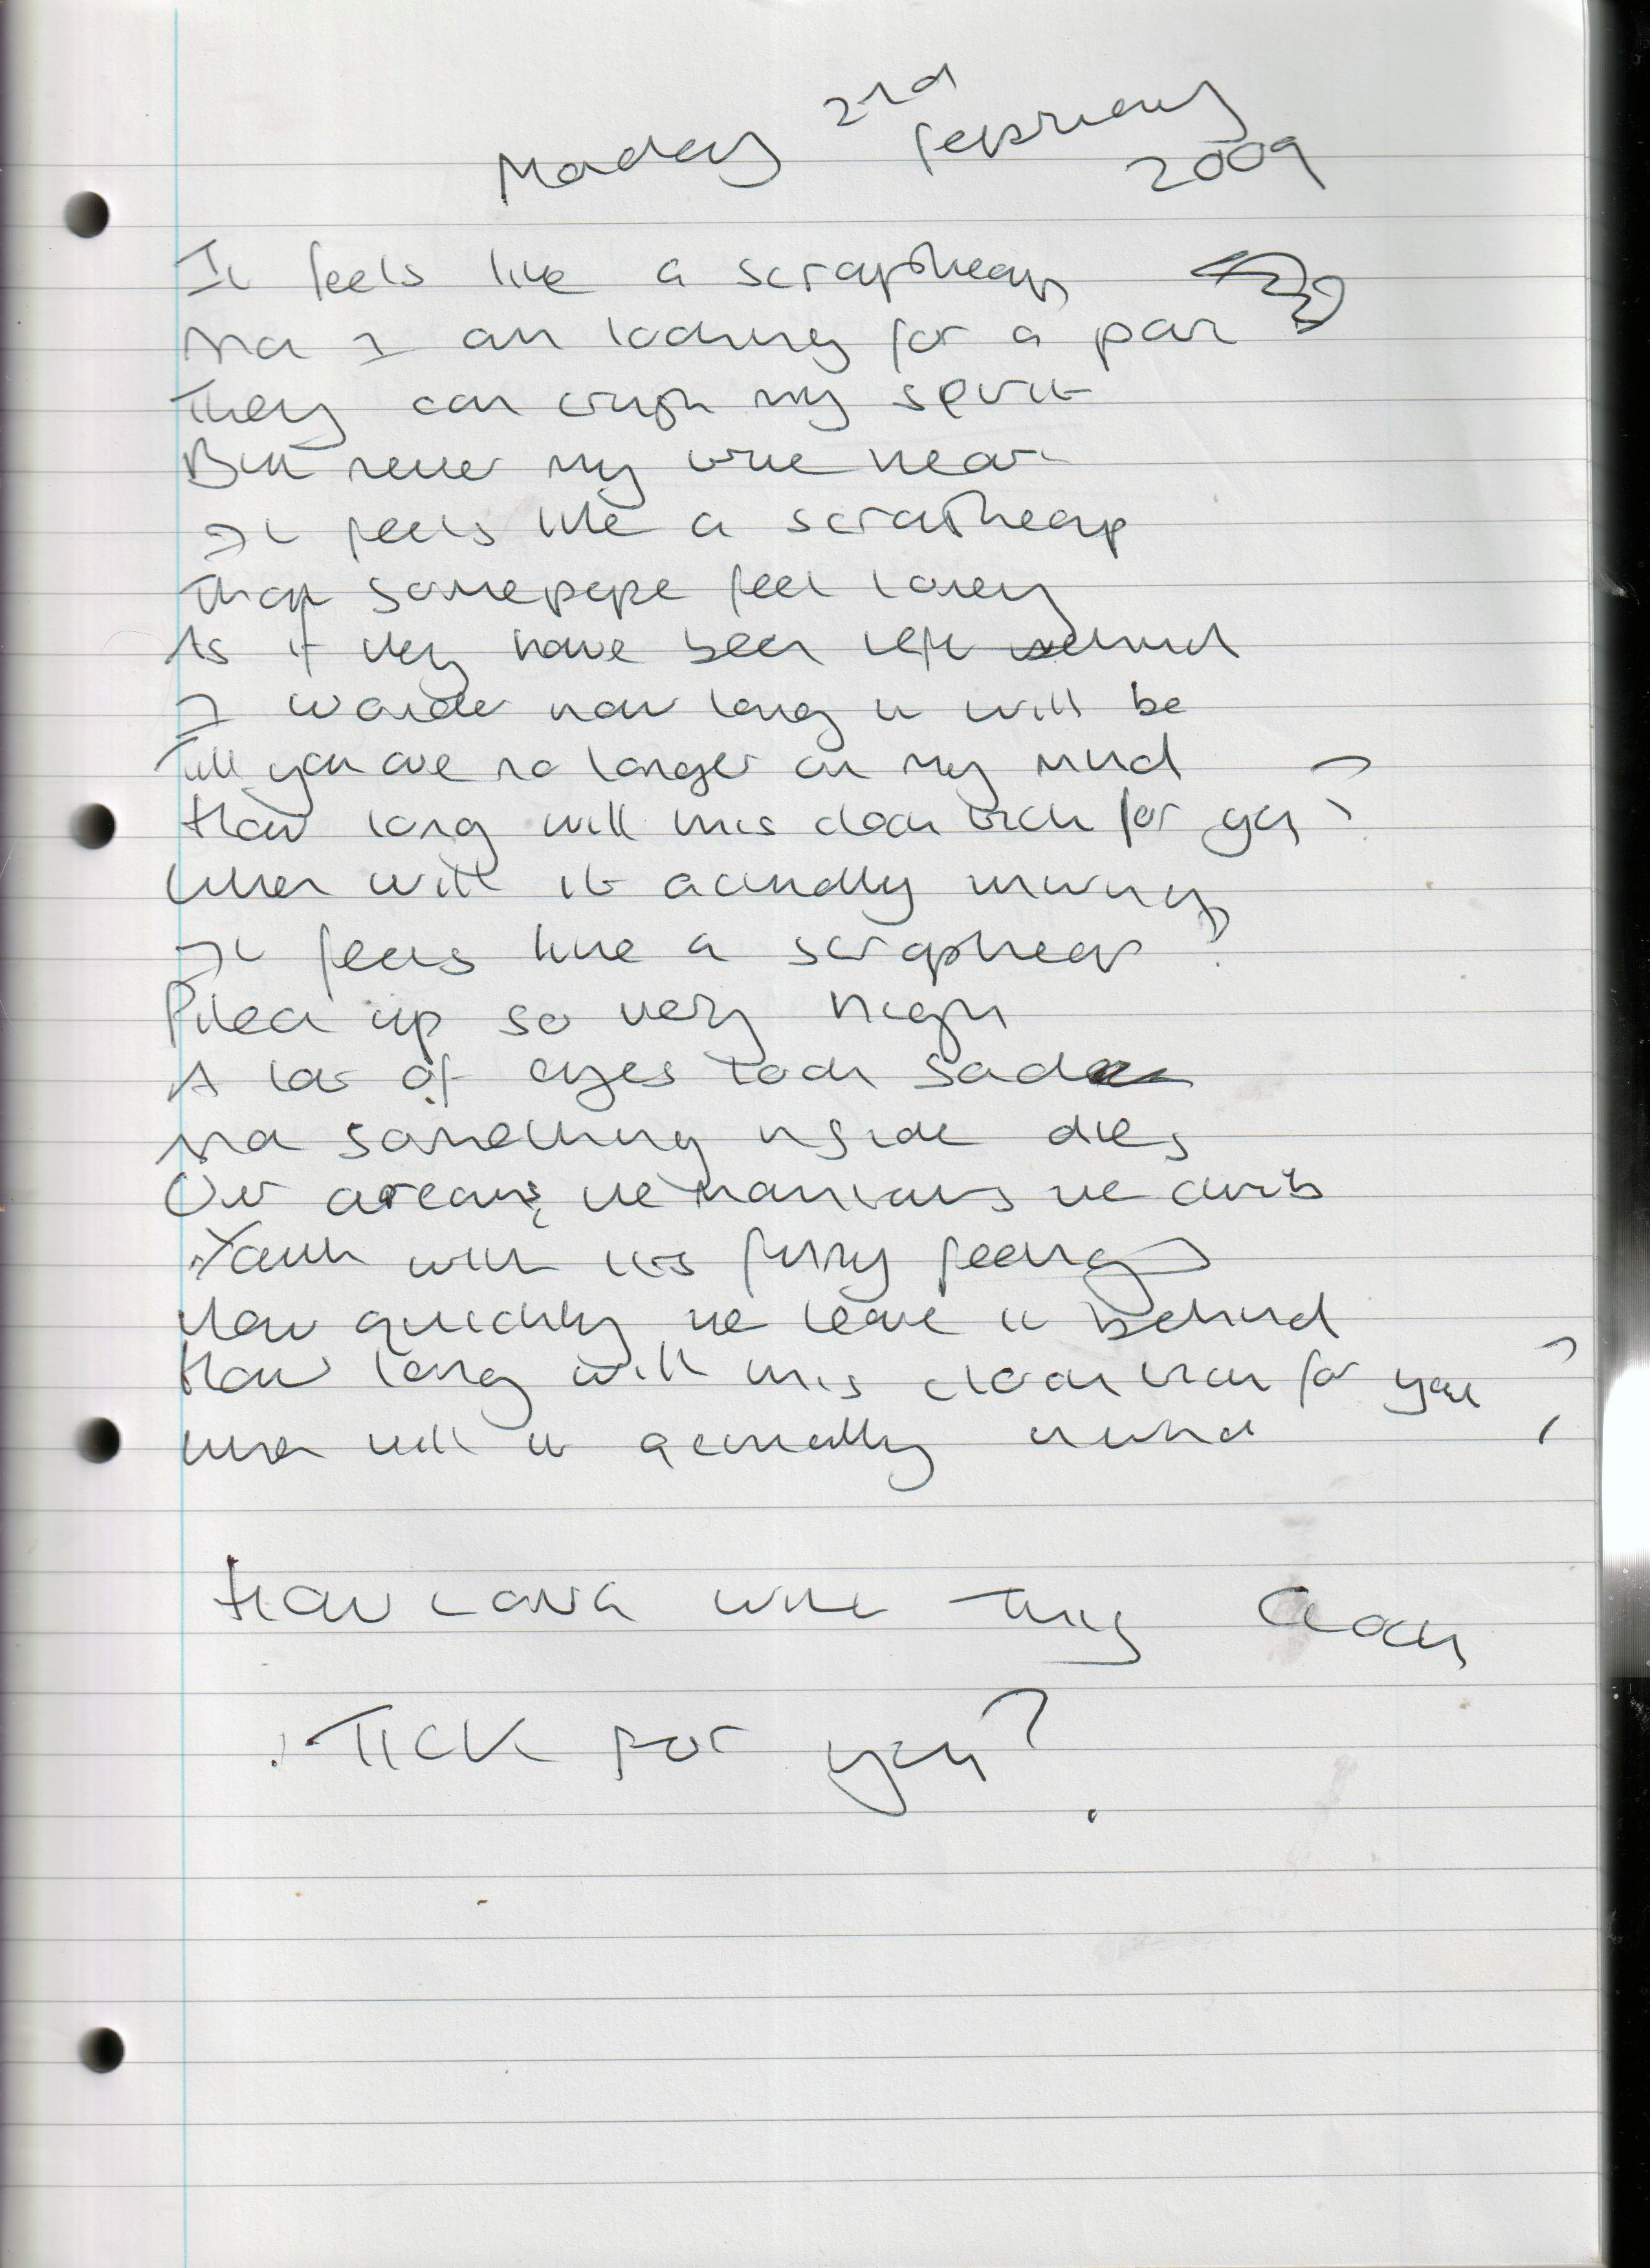 Monday 2nd February
2009
It feels like a scrapheap
And I am looking for a part
They can crush my spirit
But never my true heart
It feels like a scrapheap
That some people feel lonely
As if they have been left behind
I wonder how long it will be
Till you are no longer on my mind
How long will this clock tick for you?
When will it actually
It feels like a scrapheap?
Piled up so very high
A lot of eyes look sad
And something inside dies
Our dreams, we
Youth with its funny feelings
How quickly we leave it behind
How long will this clock tick for you?
When will it actually unwind
How long will this clock
Tick for you?